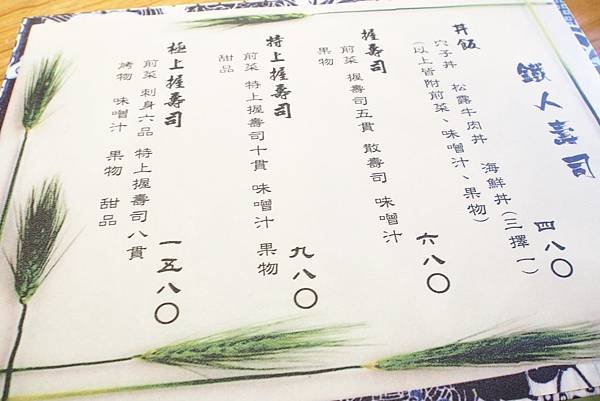 鐵人壽司
丼飯 四八〇
穴子丼 松露牛肉丼 海鮮丼(三擇一)
(以上皆附前菜、味噌汁、果物)
握壽司 六八〇
前菜 握壽司五貫 散壽司 味噌汁
果物
特上握壽司 九八〇
前菜 特上握壽司十貫 味噌汁 果物
甜品
極上握壽司 一五八〇
前菜 刺身六品 特上握壽司八貫
烤物 味噌汁 果物 甜品